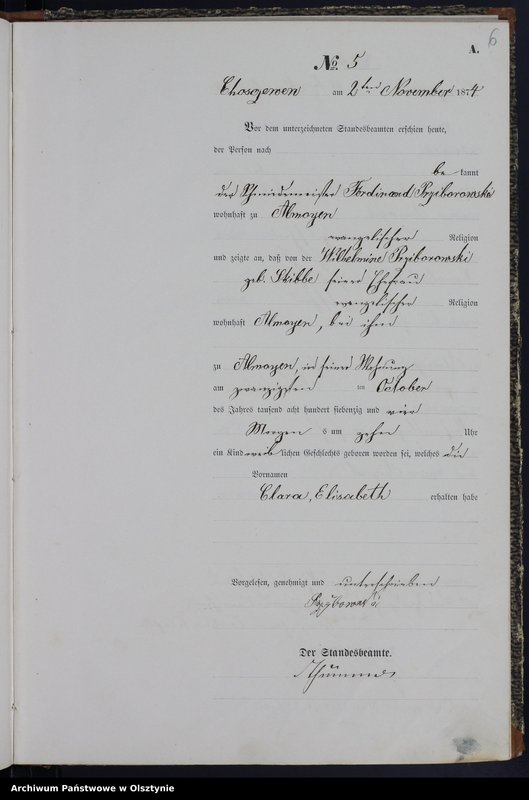 6
A.
No. 5
Choszewen am 2ten November 1874
Vor dem unterzeichneten Standesbeamten erschien heute,
der Person nach
be kannt
der Schmiedemeister Ferdinand Prziborowski
wohnhaft zu Almoyen
evangelischer Religion
und zeigte an, daß von der Wilhelmine Prziborowski
geb. Skibbe seiner Ehefrau
evangelischer Religion
wohnhaft Almoyen, bei ihm
zu Almoyen, in seiner Wohnung
am zwanzigsten ten October
des Jahres tausend acht hundert siebenzig und vier
Morgens um zehn Uhr
ein Kind weiblichen Geschlechts geboren worden sei, welches die
Vornamen
Clara, Elisabeth erhalten habe
Vorgelesen, genehmigt und unterschrieben
Der Standesbeamte.
Archiwum Państwowe w Olsztynie